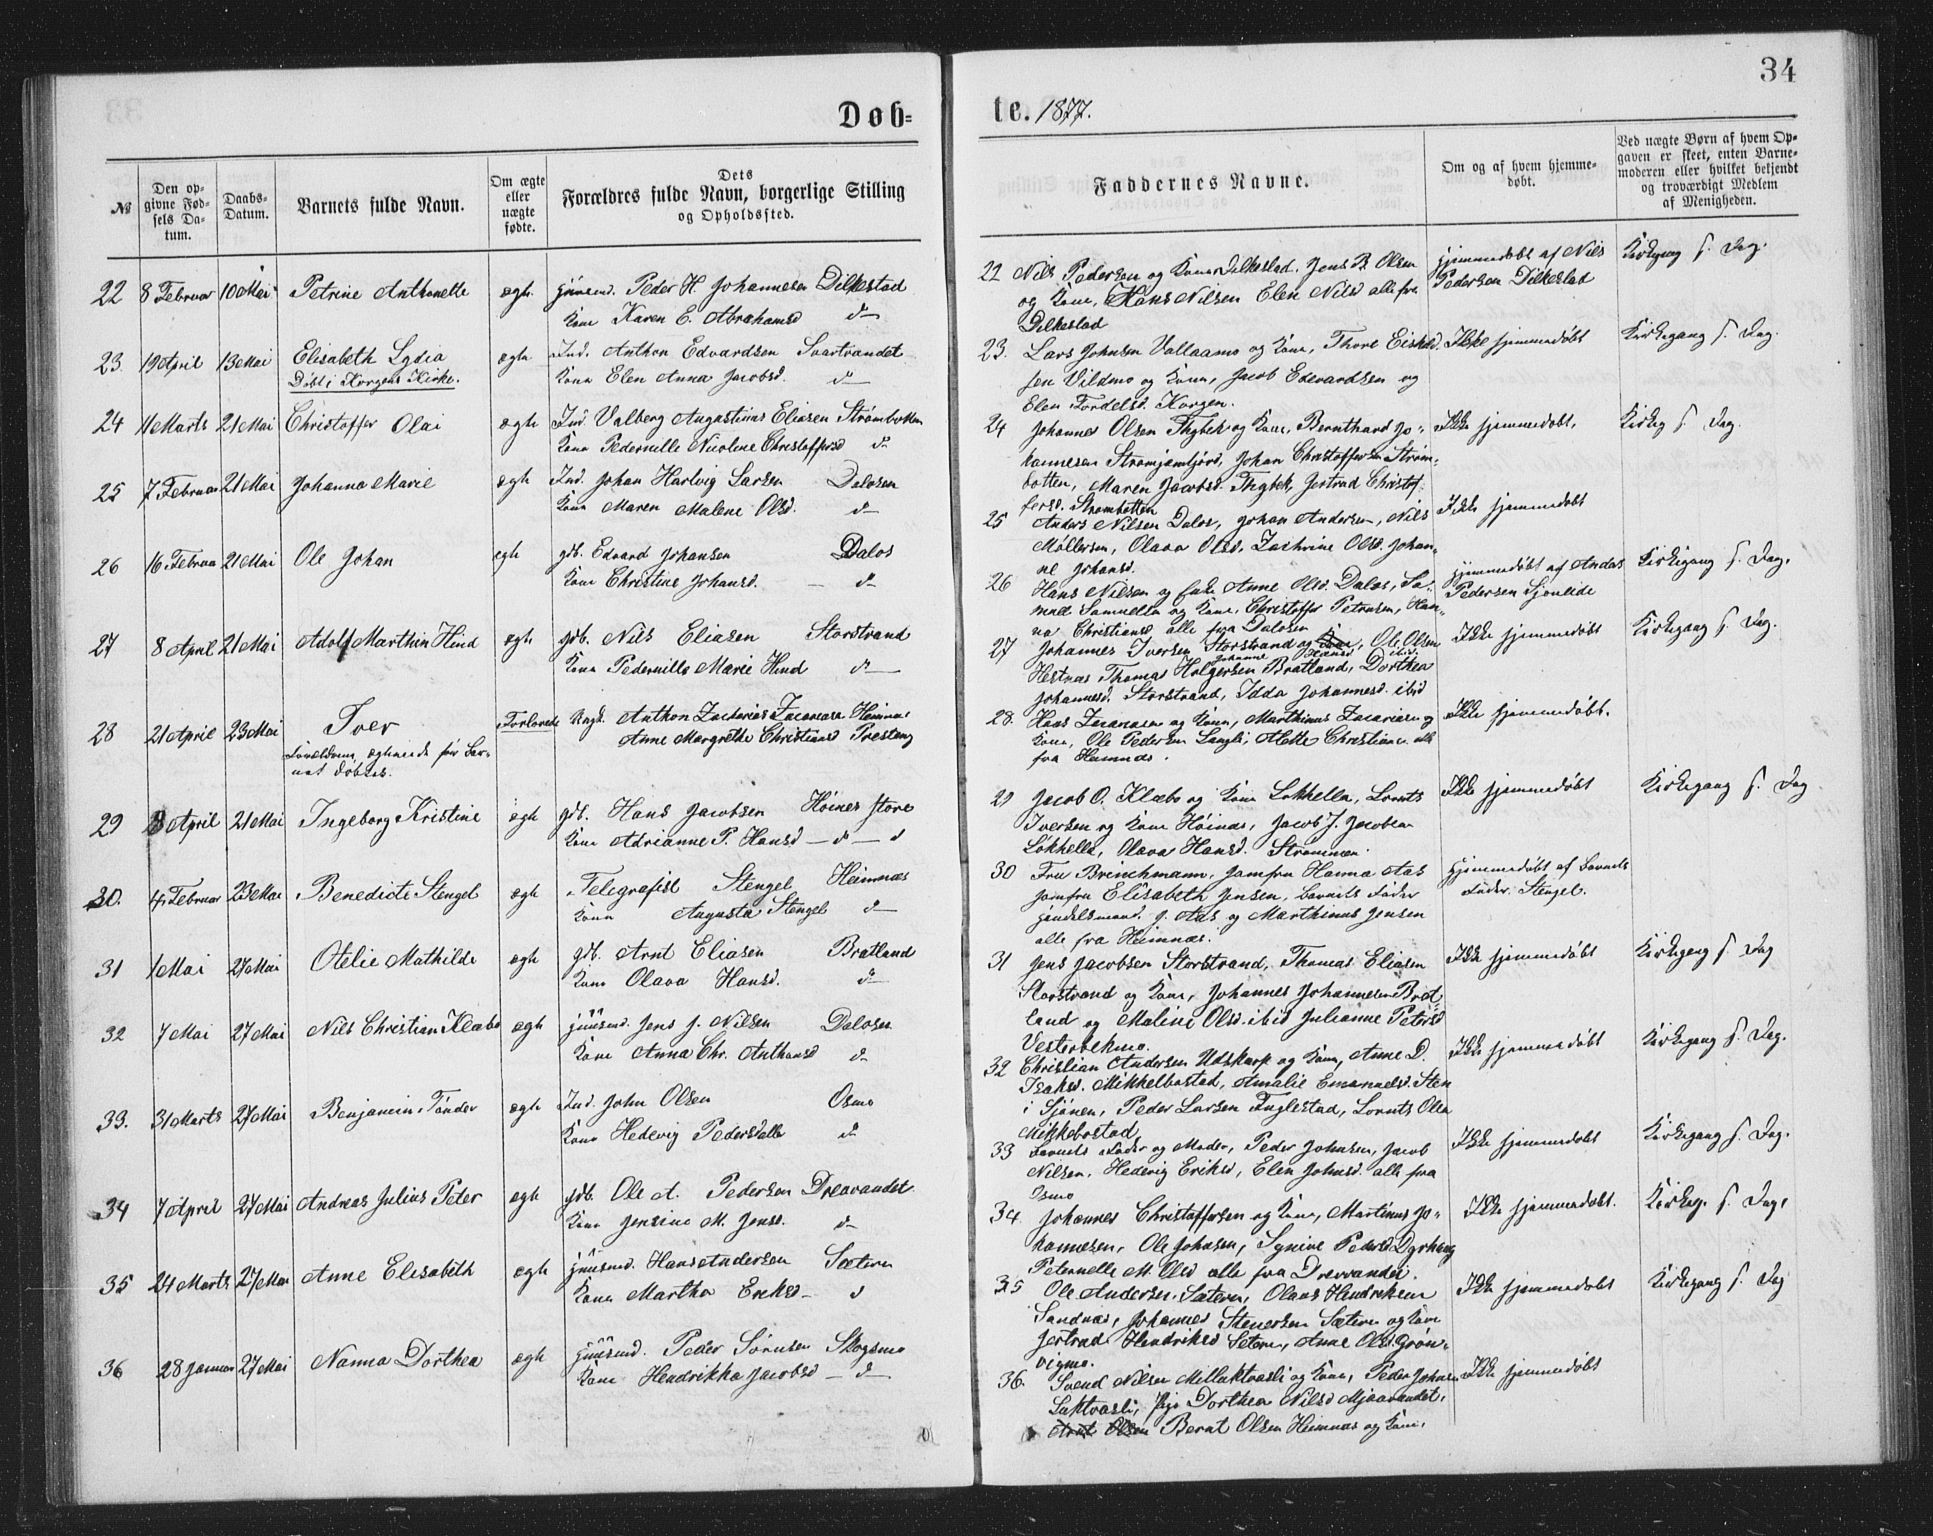 34
Døb-
te. 1877.
№
Den op-
givne Fød-
sels Da-
tum.
Daabs-
Datum.
Barnets fulde Navn.
Om ægte
eller
uægte
fødte.
Dets
Forældres fulde Navn, borgerlige Stilling
og Opholdssted.
Faddernes Navne.
Om og af hvem hjemme-
døbt.
Ved uægte Børn af hvem Op-
gaven er skeet, enten Barne-
moderen eller hvilket bekjendt
og troværdigt Medlem
af Menigheden.
22 8 Februar 10 Mai Petrine Anthonette ægte Peder H Johannesen Dilkestad
Kone Karen E. Abrahamsd do
23 19 April 13 Mai Elisabeth Lydia ægte Ind. Anthon Edvardsen Svartvandet
Døbt i Korgens Kirke. Kone Elen Anna Jacobsd. do
24 11 Marts 21 Mai Christoffer Olai ægte Ind. Valberg Augustinus Eliasen Strømbotten
Kone Pedernille Nicoline Christoffersd do
25 7 Februar 21 Mai Johanna Marie ægte Ind. Johan Hartvig Larsen Dalosen
Kone Maren Malene Olsd. do
26 16 Februar 21 Mai Ole Johan ægte gdb. Edvard Johansen Dalos
Kone Christine Johansd. do
27 8 April 21 Mai Adolf Marthin Hind ægte gdb. Nils Eliasen Storstrand
Kone Pedernille Marie Hind do
28 21 April 23 Mai Iver Forlovede Anthon Zacharias Zacariasen Heimnes
Forældrene ægteviede før Bar-
net døbtes. Anne Margrethe Christiansd
29 8 April 21 Mai Ingeborg Kristine ægte gdb. Hans Jacobsen Høines store
Kone Adrianne P. Hansd do
30. 4 Februar 23 Mai Benedicte Stengel ægte Telegrafist Stengel Heimnæs
Kone Augusta Stengel do
31 1 Mai 27 Mai Otelie Mathilde ægte gdb. Arnt Eliasen Bratland
Kone Olava Hansd. do
32 7 Mai 27 Mai Nils Christian Klæbo ægte Jens J. Nilsen Dalosen
Kone Anna Chr. Anthonsd do
33. 31 Marts 27 Mai Benjamin Tønder ægte Ind John Olsen Osmo
Kone Hedevig Pedersdatter do
34 7 April 27 Mai Andreas Julius Peter ægte gdb. Ole A. Pedersen Drevvandet
Kone Jensine M. Jensd. do
35 24 Marts 27 Mai Anne Elisabeth ægte Hans Andersen Sætern
Kone Martha Eriksd do
36 28 Januar 27 Mai Nanna Dorthea ægte Peder Sørensen Skogsmo
Kone Hendrikka Jacobsd do
22 Nils Pedersen og Kone Dilkestad, Jens P. Olsen
og Kone, Hans Nilsen Elen Nilsd alle fra
Dilkestad
hjemmedøbt af Nils
Pedersen Dilkestad
Kirkegang s. Dag.
23. Lars Johnsen Vallaamo og Kone, Thore
sen Vildmo og Kone, Jacob Edevardsen og
Elen Tordelsd. Korgen.
Ikke hjemmedøbt
Kirkegang s. Dag.
24 Johannes Olsen og Kone, Bernthard Jo-
hannesen Johan Christoffersen Strøm-
botten, Maren Jacobsd. Gertrud Christof-
fersd. Strømbotten
Ikke hjemmedøbt.
Kirkeg s. Dag.
25 Anders Nilsen Dalos, Johan Andersen, Nils
Møllersen, Olava Olsd. Olsd. Johan-
ne Johansd.
Ikke hjemmedøbt
26 Hans Nilsen og Anne Olsd. Dalos, Sa-
muel Samuelsen og Kone, Christoffer Petersen, Han-
na Christiansd alle fra Dalosen
hjemmedøbt af Andas
Pedersen Sjonlide
Kirkegang s. Dag.
27 Johannes Iversen Storstrand og Kone, Ole Olsen
Johanne Hansd ibid.
Hestnæs Thomas Holgersen Bratland, Dorthea
Johannesd. Storstrand, Idda Johannesd. ibid
Ikke hjemmedøbt
Kirkegang s. Dag.
28. Hans Zacariasen og Kone, Marthinus Zacariasen og
Kone, Ole Pedersen Alette Christiansd. alle
fra Heimnæs.
Ikke hjemmedøbt.
29 Jacob O. Klæbo og Kone Løkhella, Lornts
Iversen og Kone Høinæs, Jacob J. Jacobsen
Løkhella, Olava Hansd. Strømmen.
Ikke hjemmedøbt
Kirkegang s. Dag
30 Fru Brinchmann, Jomfru Hanna Aas
Jomfru Elisabeth Jensen, Barnets Fader
Handelsmand J. Aas og Marthinus Jensen
alle fra Heimnæs.
hjemmedøbt af Barnets
Fader Stengel.
31 Jens Jacobsen Storstrand, Thomas Eliasen
Storstrand og Kone, Johannes Johannesen Brat-
land og Maline Olsd. ibid Julianne Petersd
Vesterbekmo.
Ikke hjemmedøbt
Kirkegang s. Dag
32 Christian Andersen Utskarp og Kone, Anne D.
Isaksd. Mikkelbostad, Amalie Emanuelsd. Sten
i Sjonen, Peder Larsen Fuglestad, Lornts Olsen
Mikkebostad
Ikke hjemmedøbt
Kirkegang s. Dag.
33 Barnets Fader og Moder, Peder Johnsen, Jacob
Nilsen, Hedevig Eriksd, Elen Johnsd. alle fra
Osmo
Ikke hjemmedøbt
Kirkegang s. Dag.
34. Johannes Christoffersen og Kone, Martinus Jo-
hannesen, Ole Johnsen, Synive Pedersd.
Peternelle M. Olsd alle fra Drevvandet.
Ikke hjemmedøbt.
Kirkeg. s. Dag.
35 Ole Andersen Sætern, Olaus Hendriksen
Sandnæs, Johannes Stenersen Sætern og Kone
Gertrud Hendriksd Setern, Anne Olsd. Grøn-
vigmo.
Ikke hjemmedøbt
Kirkegang s. Dag
36. Svend Nilsen og Kone, Peder Johnsen
Pige Dorthea Nilsd Mjaavandet,
Arnt Olsen Bernt Olsen Heimnæs og Kone.
Ikke hjemmedøbt